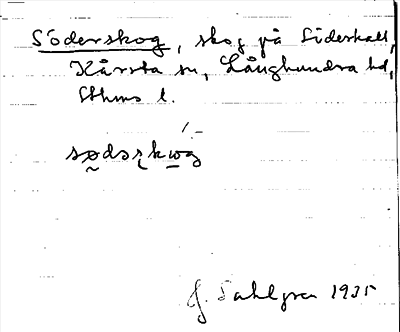 Söderskog, skog på Söderhall,
Kårsta sn, Långhundra hd,
Sthms l.
sødsʂkωg
J. Sahlgren 1935